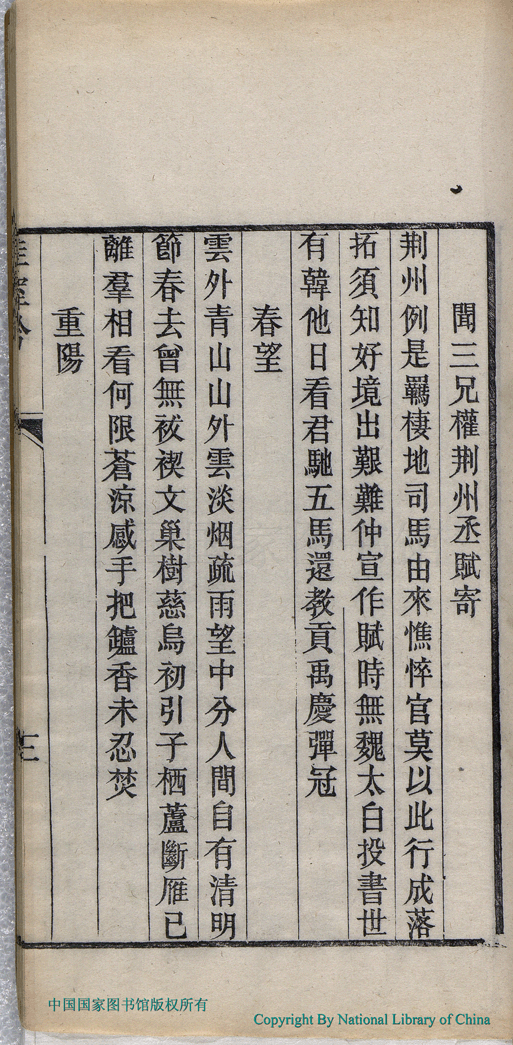 聞三兄權荆州丞賦寄
荆州例是羈棲地司馬由來憔悴官莫以此行成落
拓須知好境出艱難仲宣作賦時無魏太白投書世
有韓他日看君馳五馬還教貢禹慶彈冠
春望
雲外青山山外雲淡烟疏雨望中分人間自有清明
節春去曾無祓禊文巢樹慈烏初引子栖蘆斷雁已
離羣相看何限蒼涼感手把鑪香未忍焚
重陽
三
中国国家图书馆版权所有
Copyright By National Library of China